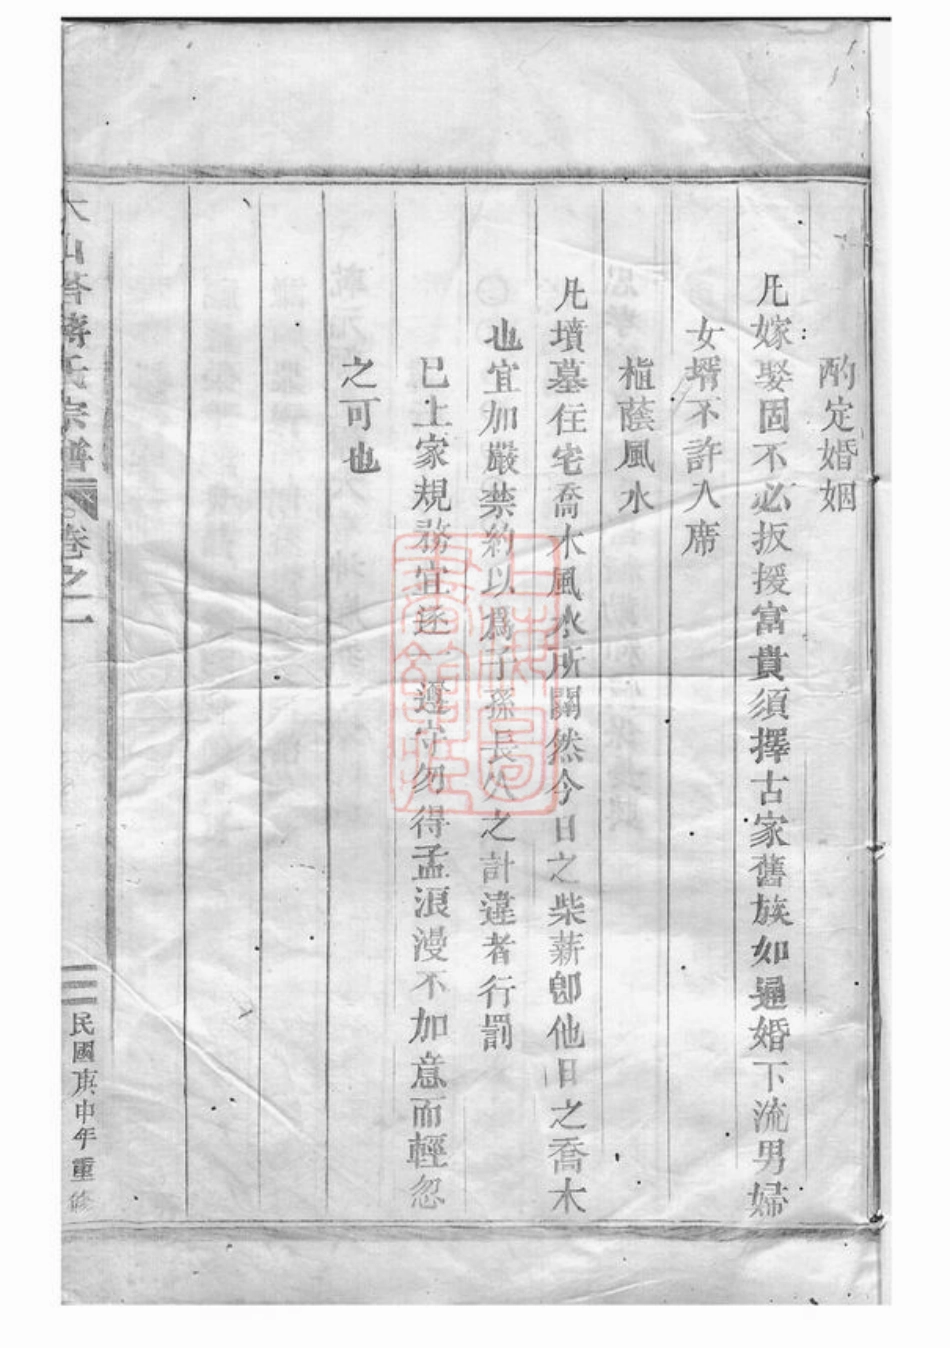 酌定婚姻
凡嫁娶固不必扳援富貴須擇古家舊族如通婚下流男婦
女壻不許入席
植蔭風水
凡墳墓住宅喬木風水所關然今日之柴薪卽他日之喬木
也宜加嚴禁約以爲子孫長久之計違者行罰
已上家規務宜逐一遵守勿得孟浪漫不加意而輕忽
之可也
木山蔣氏宗譜 卷之一
民國庚申年重修